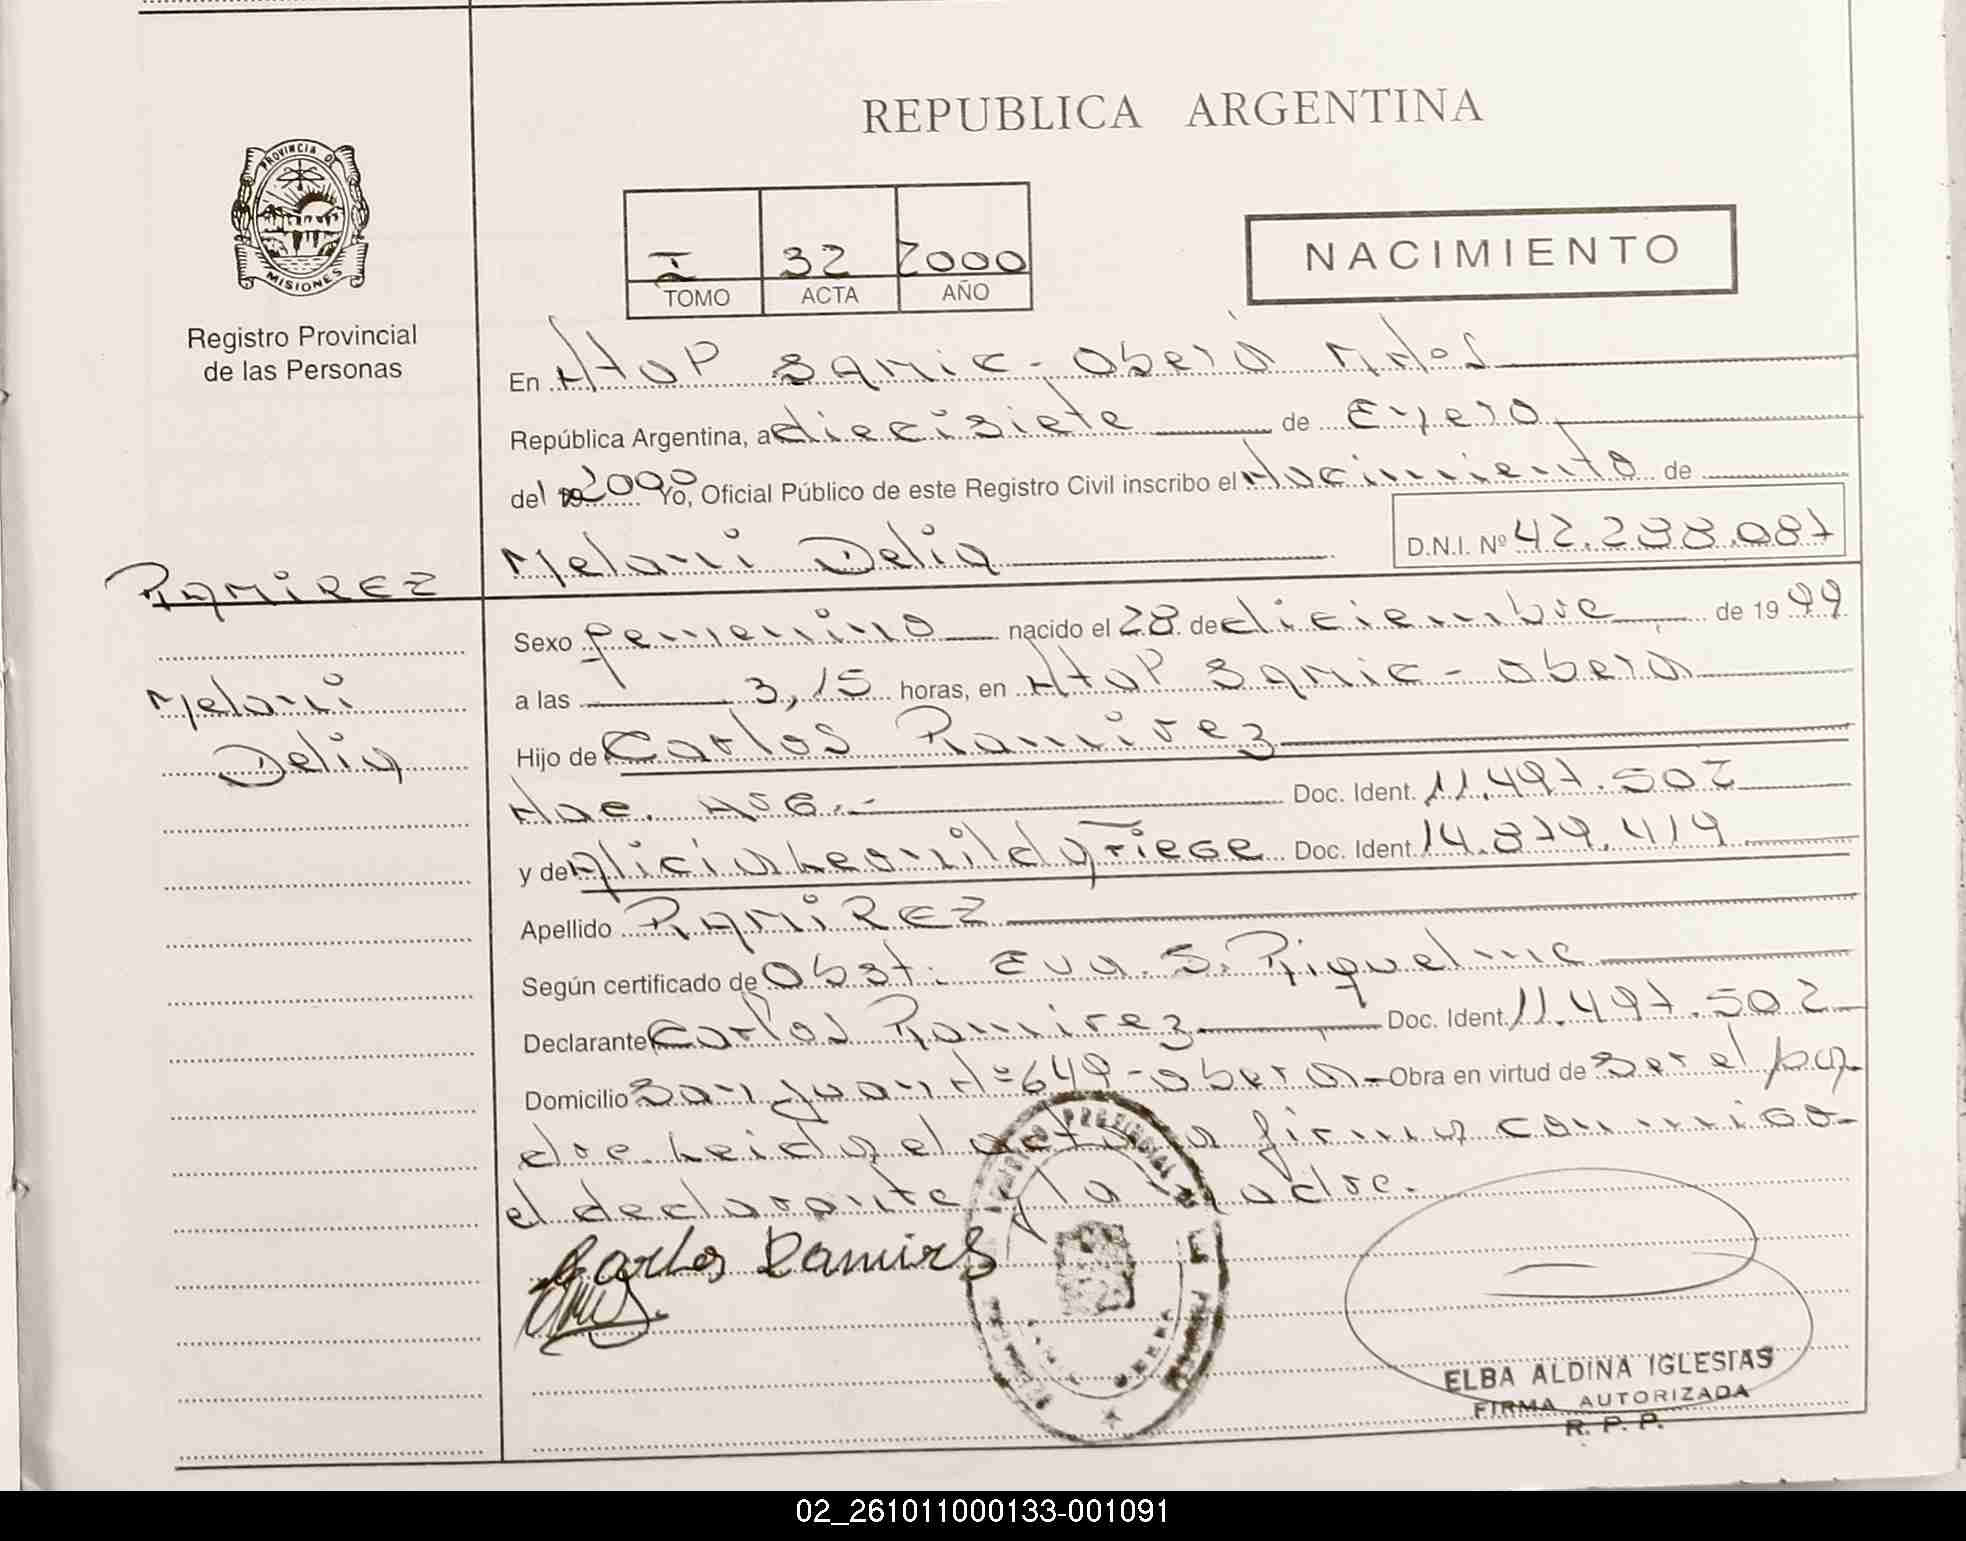 REPUBLICA ARGENTINA
PROVINCIA DE
MISIONES
Registro Provincial
de las Personas
I 32 2000
TOMO ACTA AÑO
NACIMIENTO
En Htop Samic - Oberá Mnes
República Argentina, a diecisiete de Enero
del 2000 Yo, Oficial Público de este Registro Civil inscribo el Nacimiento de
Melani Delia D.N.I. Nº 42.288.087
RAMIREZ
Melani
Delia
Sexo femenino nacido el 28 de diciembre de 1999
a las 3,15 horas, en Htop Samic - Oberá
Hijo de Carlos Ramirez
Nac. Arg.- Doc. Ident. 11.497.502
y de Alicia Leonilda Fiege Doc. Ident. 14.879.419
Apellido RAMIREZ
Según certificado de Obst. Eva S. Riquelme
Declarante Carlos Ramirez Doc. Ident. 11.497.502
Domicilio San Juan Nº 649 - Oberá Obra en virtud de ser el pa-
dre. Leida el acta la firma conmigo
el declarante y la madre.
Carlos Ramires
ELBA ALDINA IGLESIAS
FIRMA AUTORIZADA
R. P. P.
02_261011000133-001091